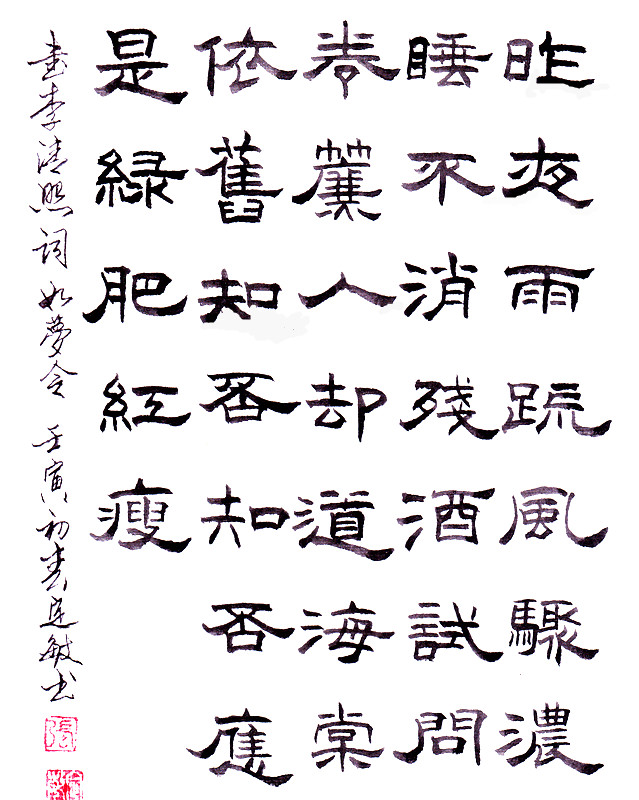 昨夜雨疏風驟濃
睡不消殘酒試問
卷簾人却道海棠
依舊知否知否應
是綠肥紅瘦
书李清照词 如夢令 壬寅初春 敏书